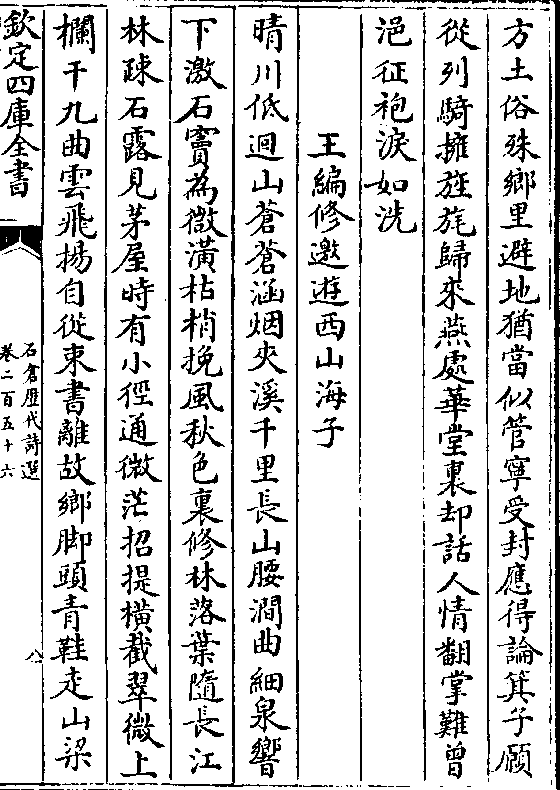 方土俗殊鄉里避地猶當似管寧受封應得論箕子願
從列騎擁旌旄歸來燕處華堂裏却話人情翻掌難曾
浥征袍淚如洗
王編修邀遊西山海子
晴川低迴山蒼蒼涵烟夾溪千里長山腰澗曲細泉響
下激石竇為微潢枯梢挽風秋色裏修林落葉隨長江
林疎石露見茅屋時有小徑通微茫招提橫截翠微上
欄干九曲雲飛揚自從束書離故鄉脚頭青鞋走山梁
欽定四庫全書
石倉歷代詩選
卷二百五十六
八